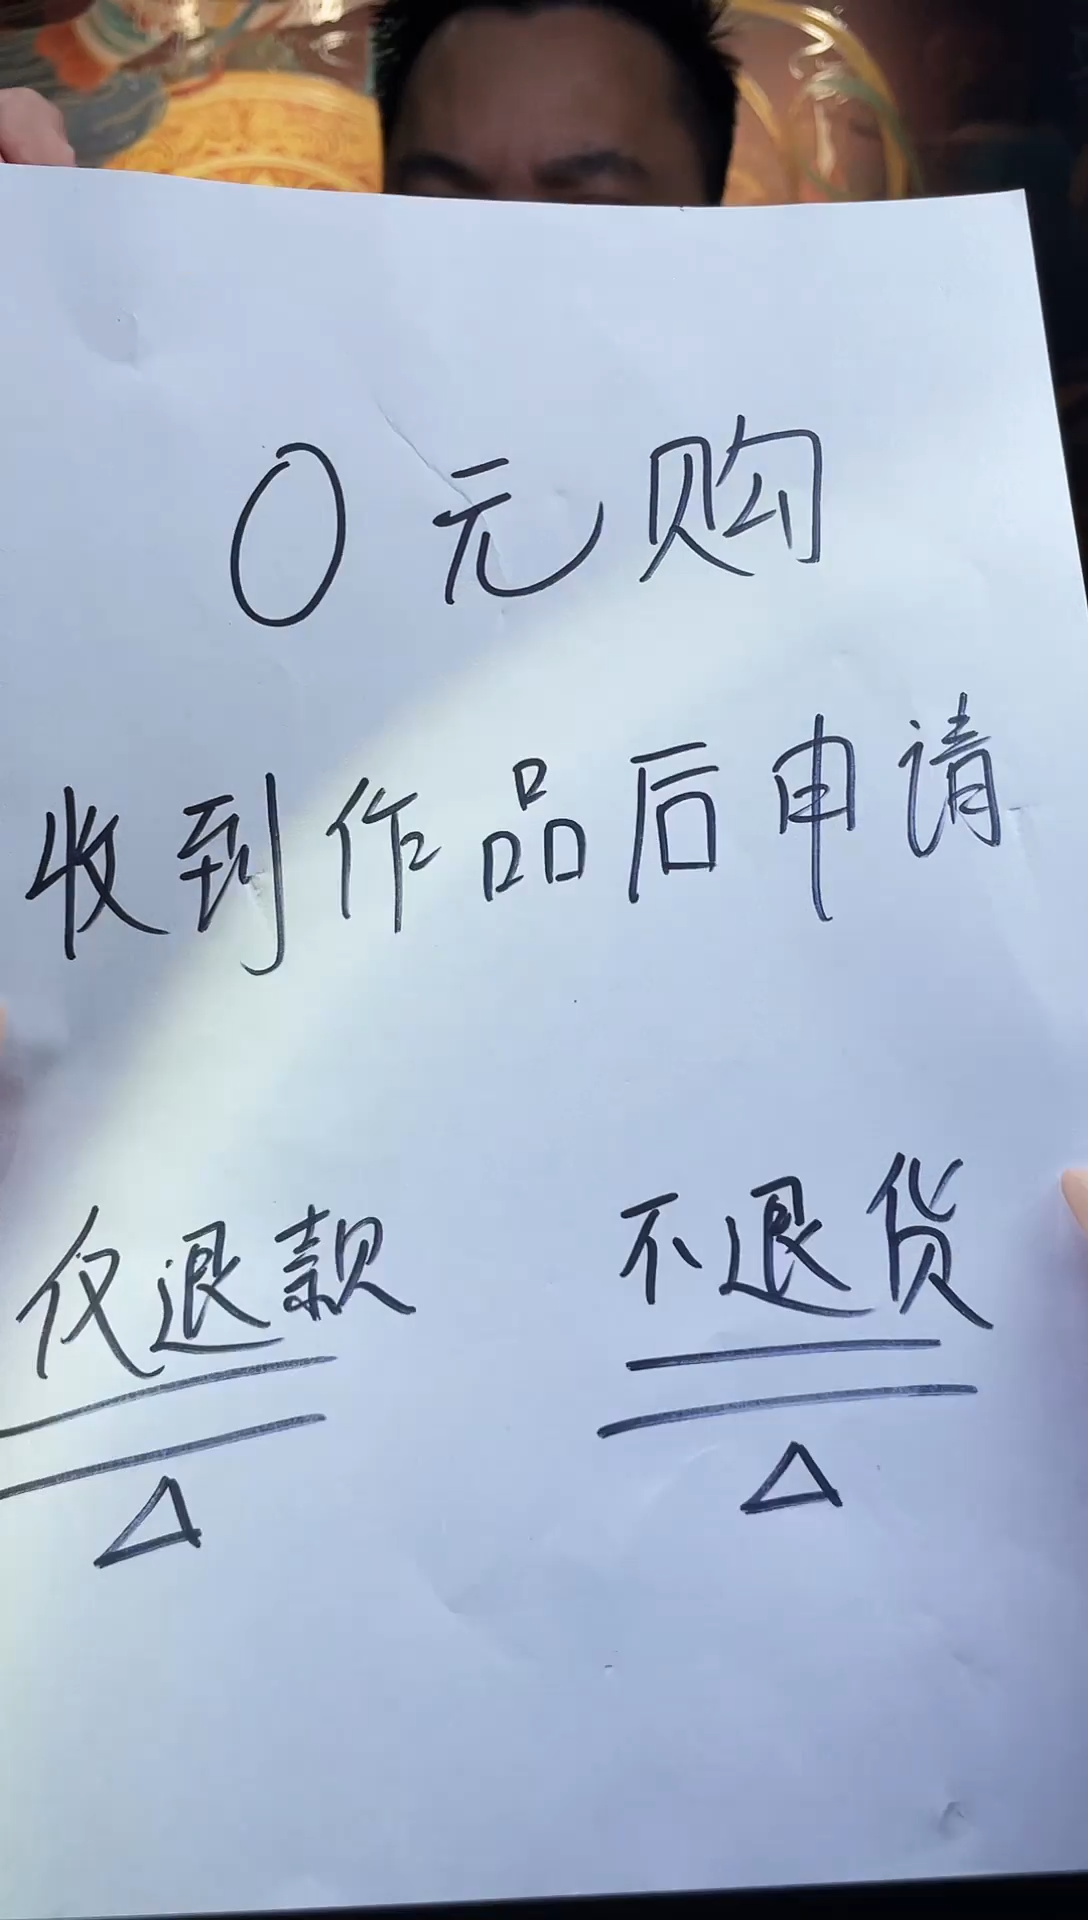 0元购
收到作品后申请
仅退款 不退货